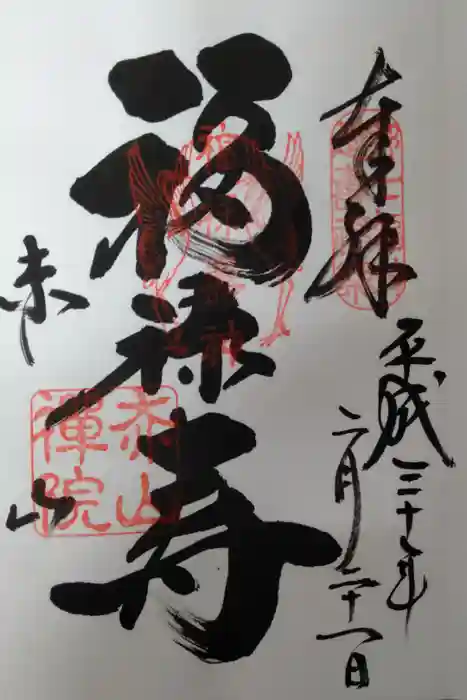 奉拝
平成 年
二月二十一日
福禄寿
赤山
赤山
禪院